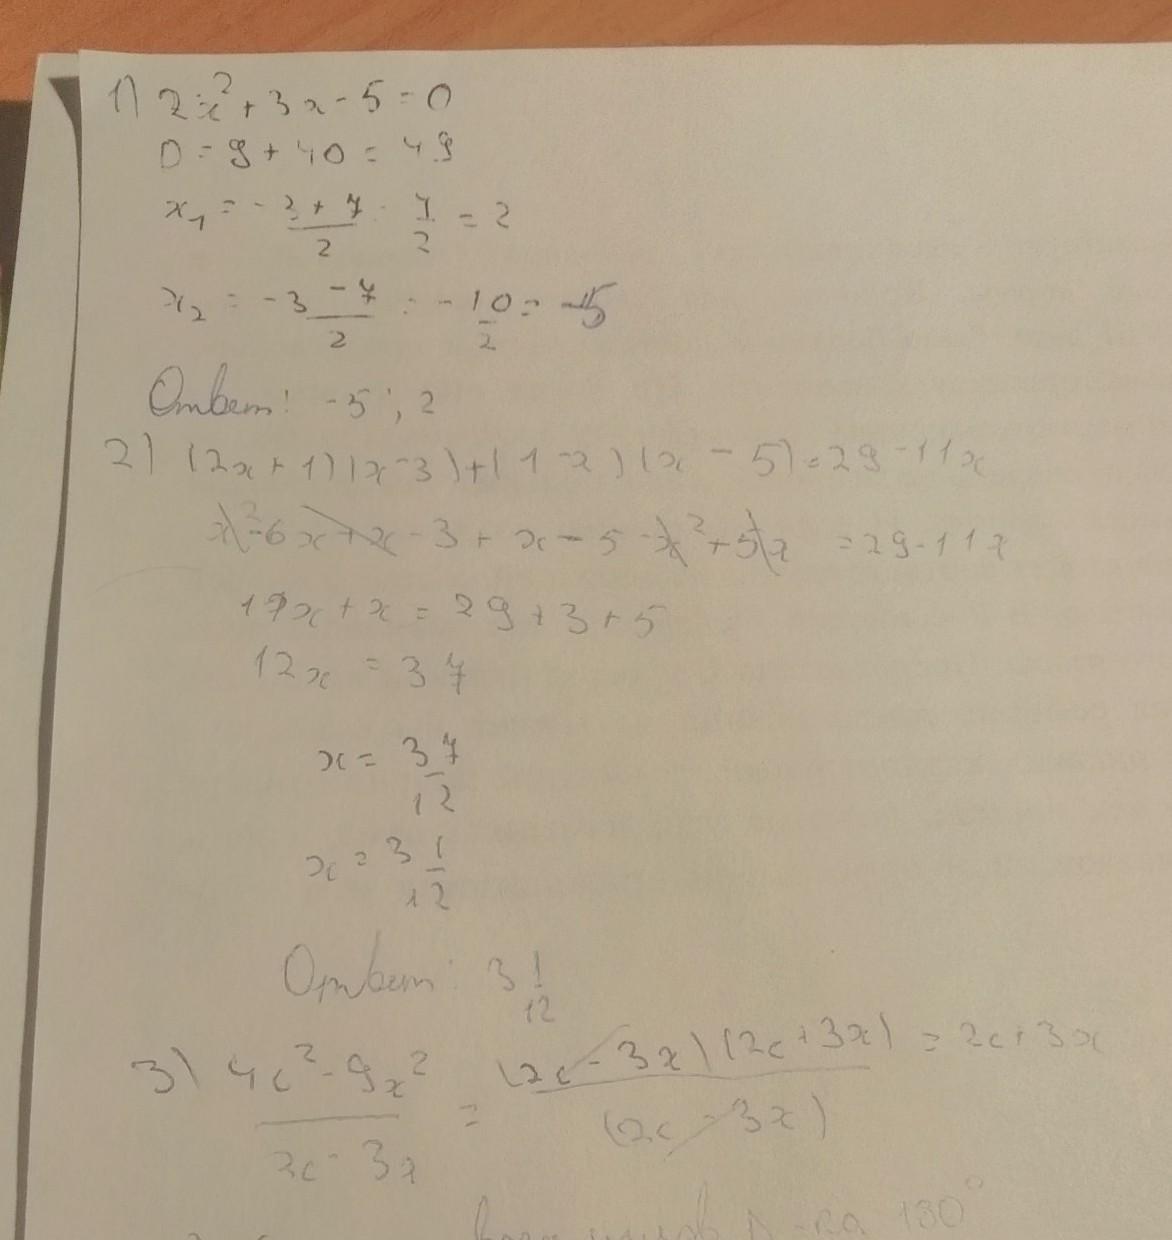 1) 2x² + 3x - 5 = 0
D = 9 + 40 = 49
x₁ = -3 + 7/2 = 4/2 = 2
x₂ = -3 - 7/2 = -10/2 = -5
Ответ: -5; 2
2) (2x + 1)(x - 3) + (1 - x)(x - 5) = 29 - 11x
x² - 6x + x - 3 + x - 5 - x² + 5x = 29 - 11x
11x + x = 29 + 3 + 5
12x = 37
x = 37/12
x = 3 1/12
Ответ: 3 1/12
3) 4c² - 9x²/2c - 3x = (2c - 3x)(2c + 3x)/(2c - 3x) = 2c + 3x
углов Δ-ка 180°